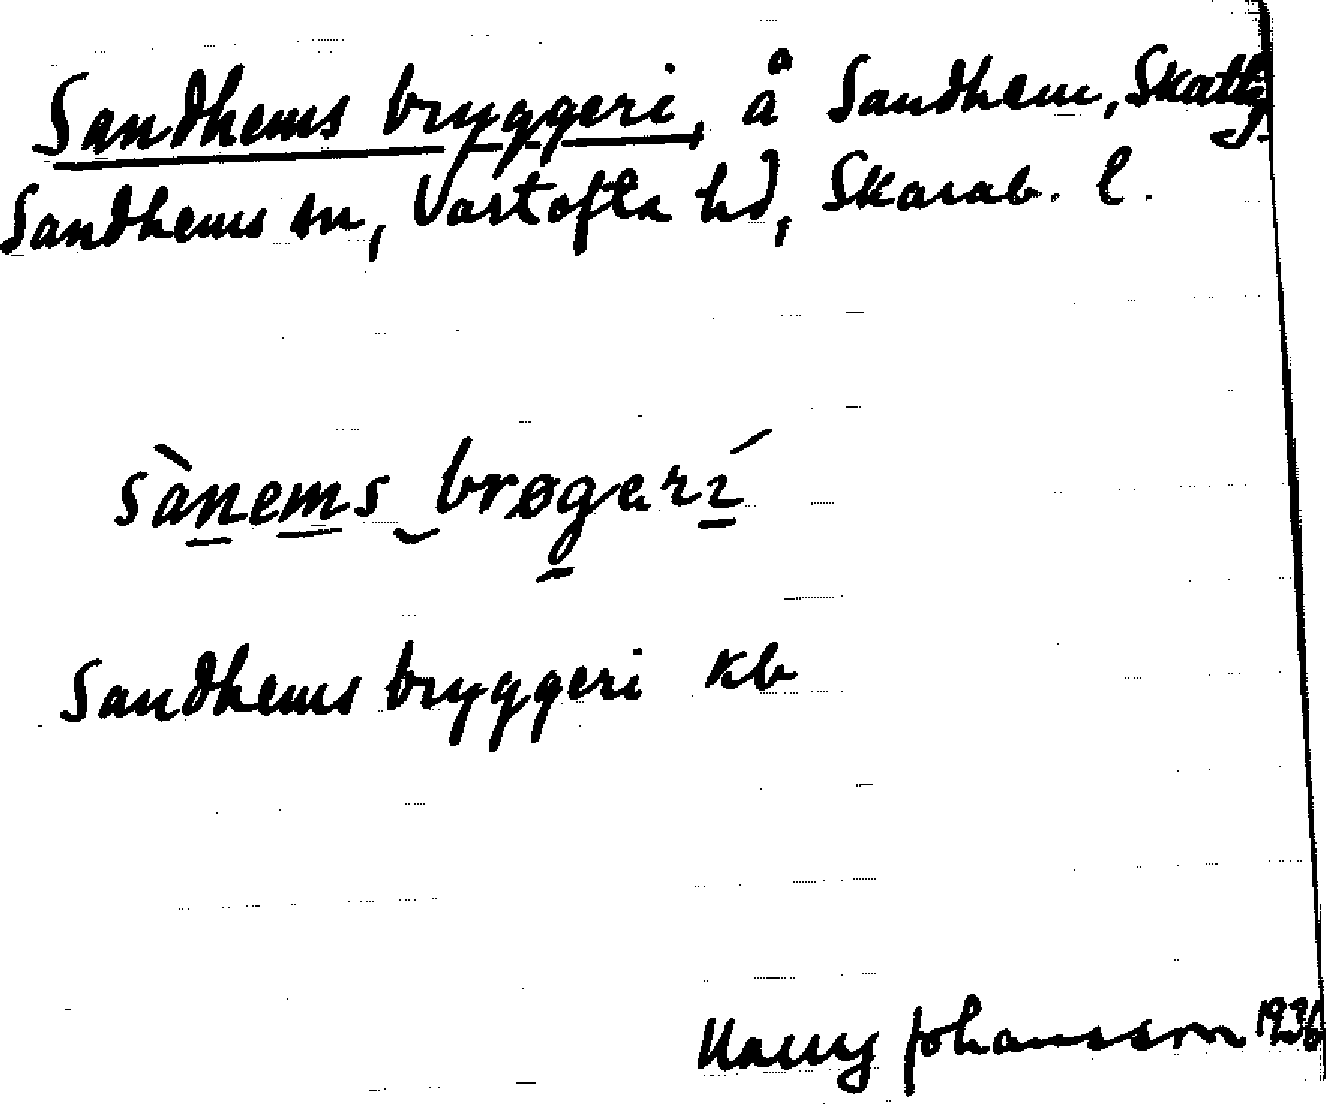 Sandhems bryggeri, å Sandhem, Skattg
Sandhems sn, Vartofta hd, Skarab. l.
sànems brøgerí
Sandhems bryggeri kb
Harry Johansson 1936